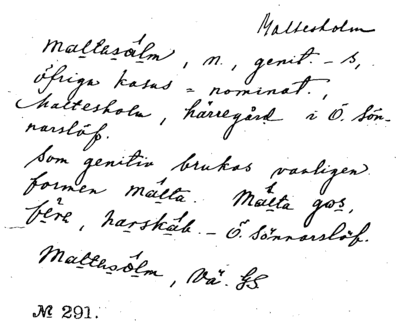 Maltesholm
maltesólm, n., genit. -s,
öfriga kasus = nominat.,
Maltesholm, härregård i Ö. Sön-
narslöf.
Som genitiv brukas vanligen
formen málta. Málta gos,
harskáb. - Ö Sönnarslöf.
Maltesólm, Vä. GS
№ 291.